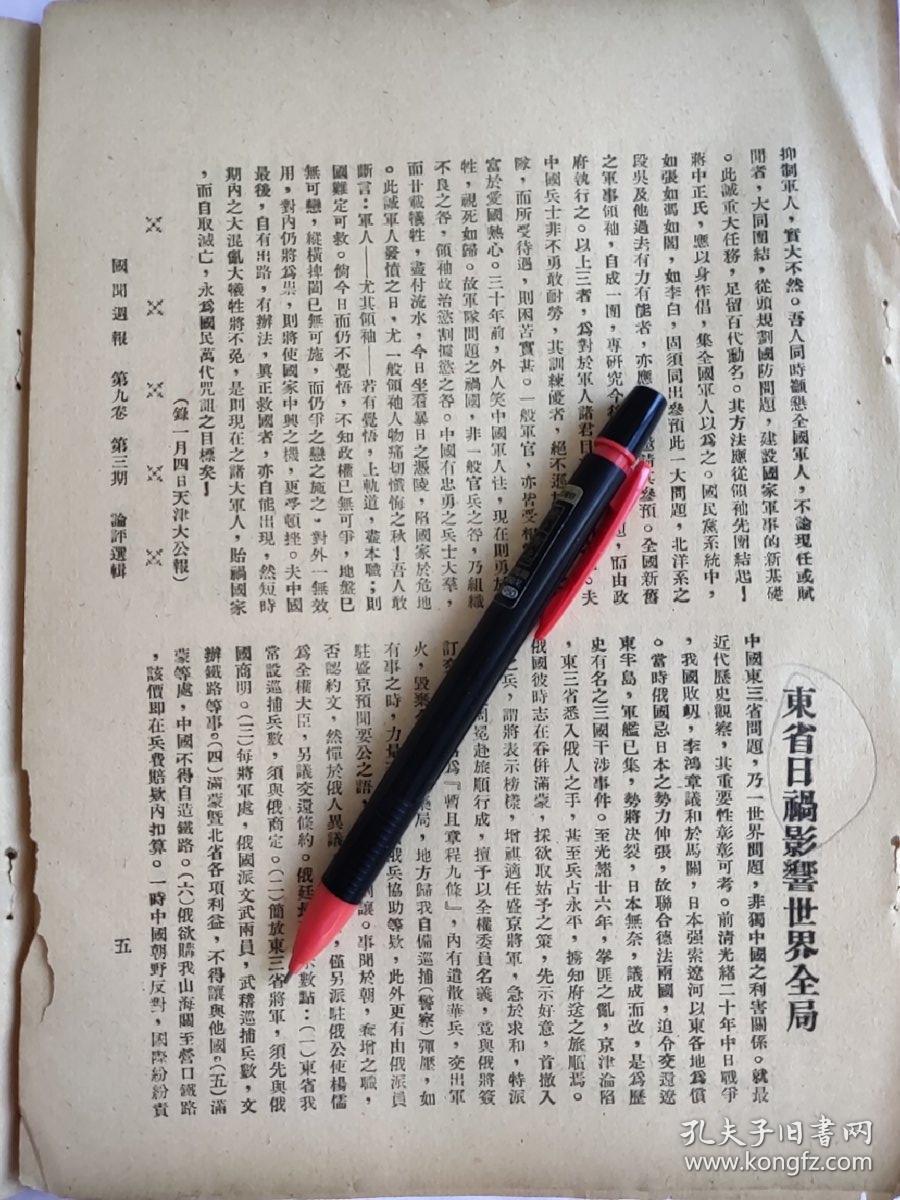 抑制軍人，實大不然。吾人同時籲懇全國軍人，不論現任或賦
閒者，大同團結，從頭規劃國防問題，建設國家軍事的新基礎
。此誠重大任務，足留百代勳名。其方法應從領袖先團結起！
蔣中正氏，應以身作倡，集全國軍人以為之。國民黨系統中，
如張如馮如閻，如李白，固須同出參預此一大問題，北洋系之
段吳及他過去有力有能者，亦應 參預。全國新舊
之軍事領袖，自成一團，專研究今 ，而由政
府執行之。以上三者，為對於軍人諸君 。夫
中國兵士非不勇敢耐勞，其訓練優者，絕不
隊，而所受待遇，則困苦實甚。一般軍官，亦皆受相
富於愛國熱心。三十年前，外人笑中國軍人往，現在則勇於
牲，視死如歸。故軍隊問題之禍國，非一般官兵之咎，乃組織
不良之咎，領袖政治慾割據慾之咎。中國有忠勇之兵士大羣，
而廿載犧牲，盡付流水，今日坐看暴日之憑陵，陷國家於危地
。此誠軍人發憤之日，尤一般領袖人物痛切懺悔之秋！吾人敢
斷言：軍人——尤其領袖——若有覺悟，上軌道，盡本職；則
國難定可救。倘今日而仍不覺悟，不知政權已無可爭，地盤已
無可戀，縱橫捭闔已無可施，而仍爭之戀之施之，對外一無效
用，對內仍將為祟，則將使國家中興之機，更受頓挫。夫中國
最後，自有出路，有辦法，眞正救國者，亦自能出現，然短時
期內之大混亂大犧牲將不免，是則現在之諸大軍人，貽禍國家
，而自取滅亡，永為國民萬代咒詛之目標矣！
（錄一月四日天津大公報）
國聞週報 第九卷 第三期 論評選輯
東省日禍影響世界全局
中國東三省問題，乃一世界問題，非獨中國之利害關係。就最
近代歷史觀察，其重要性彰彰可考。前清光緒二十年中日戰爭
，我國敗衄，李鴻章議和於馬關，日本强索遼河以東各地為償
。當時俄國忌日本之勢力伸張，故聯合德法兩國，迫令交還遼
東半島，軍艦已集，勢將決裂，日本無奈，議成而改，是為歷
史有名之三國干涉事件。至光緒廿六年，拳匪之亂，京津淪陷
，東三省悉入俄人之手，甚至兵占永平，擄知府送之旅順焉。
俄國彼時志在吞併滿蒙，採欲取姑予之策，先示好意，首撤入
之兵，謂將表示榜樣，增祺適任盛京將軍，急於求和，特派
周冕赴旅順行成，擅予以全權委員名義，竟與俄將簽
訂 為『暫且章程九條』，內有遣散華兵，交出軍
火，毀棄 藥局，地方歸我自備巡捕（警察）彈壓，如
有事之時，力量 俄兵協助等欵，此外更有由俄派員
駐盛京預聞要公之語， 讓。事聞於朝，奪增之職，
否認約文，然憚於俄人異議 ，僅另派駐俄公使楊儒
為全權大臣，另議交還條約。俄廷 數點：（一）東省我
常設巡捕兵數，須與俄商定。（二）簡放東三省將軍，須先與俄
國商明。（三）每將軍處，俄國派文武兩員，武稽巡捕兵數，文
辦鐵路等事。（四）滿蒙暨北省各項利益，不得讓與他國。（五）滿
蒙等處，中國不得自造鐵路。（六）俄欲購我山海關至營口鐵路
，該價即在兵費賠欵內扣算。一時中國朝野反對，國際紛紛責
五
孔夫子旧书网
www.kongfz.com